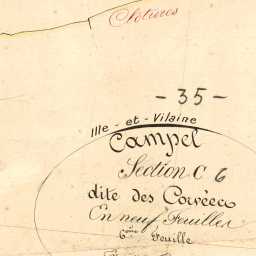 Clotures
- 35 -
Ille - et - Vilaine
Campel
Section C 6
dite des
En neuf Feuilles
6ème Feuille